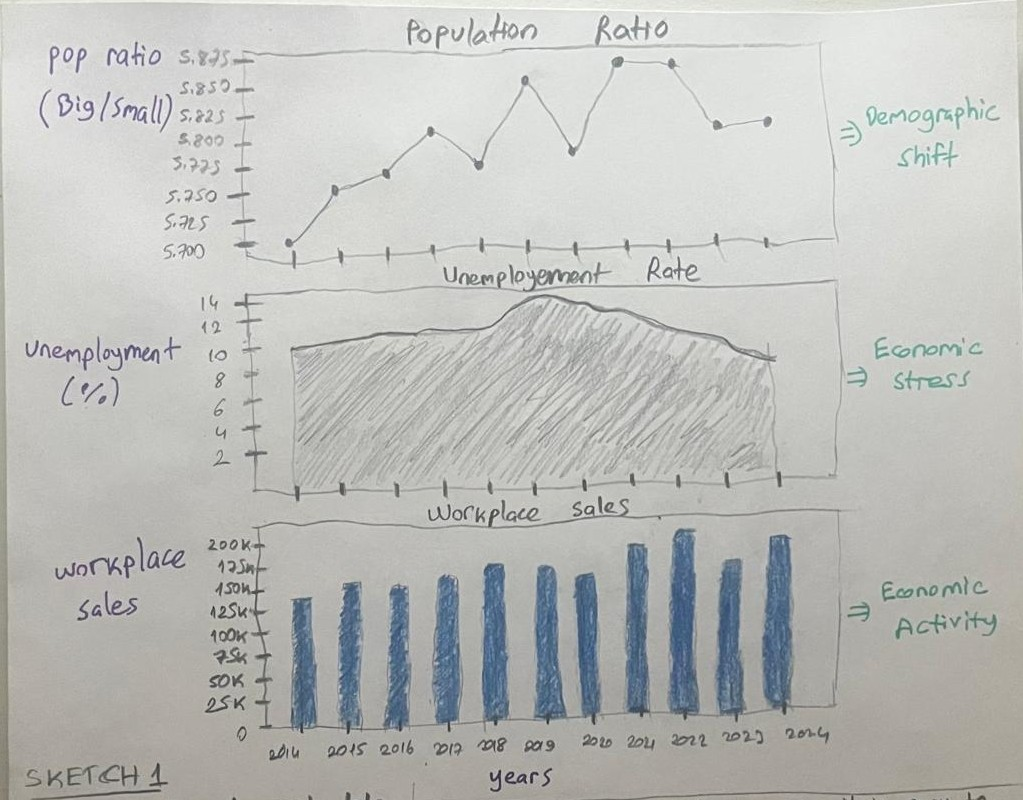 Population Ratio
pop ratio
(Big/Small)
5.875
5.850
5.825
5.800
5.775
5.750
5.725
5.700
⇒ Demographic
shift
Unemployement Rate
Unemployment
(%)
14
12
10
8
6
4
2
⇒ Economic
stress
Workplace sales
workplace
sales
200K
175K
150K
125K
100K
75K
50K
25K
0
⇒ Economic
Activity
2014 2015 2016 2017 2018 2019 2020 2021 2022 2023 2024
years
SKETCH 1